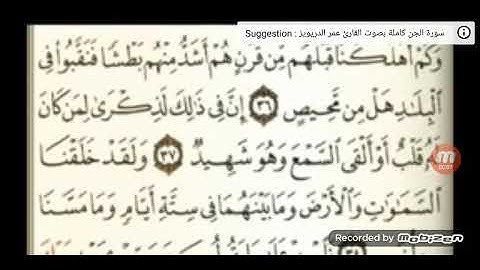 Suggestion : سورة الجن كاملة بصوت القارئ عمر الدريويز
وَكَمْ أَهْلَكْنَا قَبْلَهُم مِّن قَرْنٍ هُمْ أَشَدُّ مِنْهُم بَطْشًا فَنَقَّبُوا۟ فِى
ٱلْبِلَٰدِ هَلْ مِن مَّحِيصٍ ٣٦ إِنَّ فِى ذَٰلِكَ لَذِكْرَىٰ لِمَن كَانَ
لَهُۥ قَلْبٌ أَوْ أَلْقَى ٱلسَّمْعَ وَهُوَ شَهِيدٌ ٣٧ وَلَقَدْ خَلَقْنَا
ٱلسَّمَٰوَٰتِ وَٱلْأَرْضَ وَمَا بَيْنَهُمَا فِى سِتَّةِ أَيَّامٍ وَمَا مَسَّنَا
Recorded by mobizen